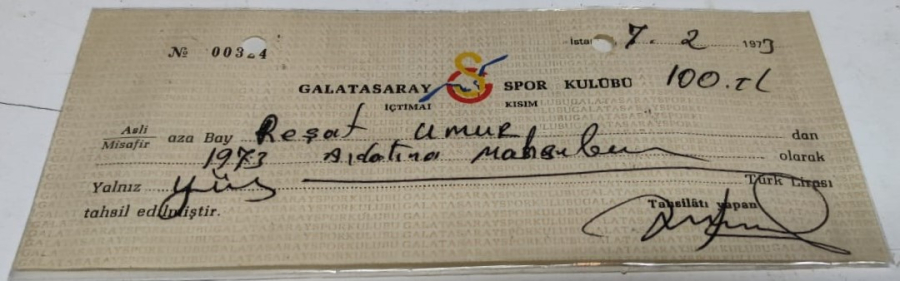 № 00324
7. 2 1973
GALATASARAY SPOR KULÜBÜ 100.tl
İÇTİMAİ KISIM
Asli
Misafir aza Bay Reşat Umur dan
1973 Aidatına Mahsuben olarak
Yalnız yüz Türk Lirası
tahsil edilmiştir. Tahsilâtı yapan